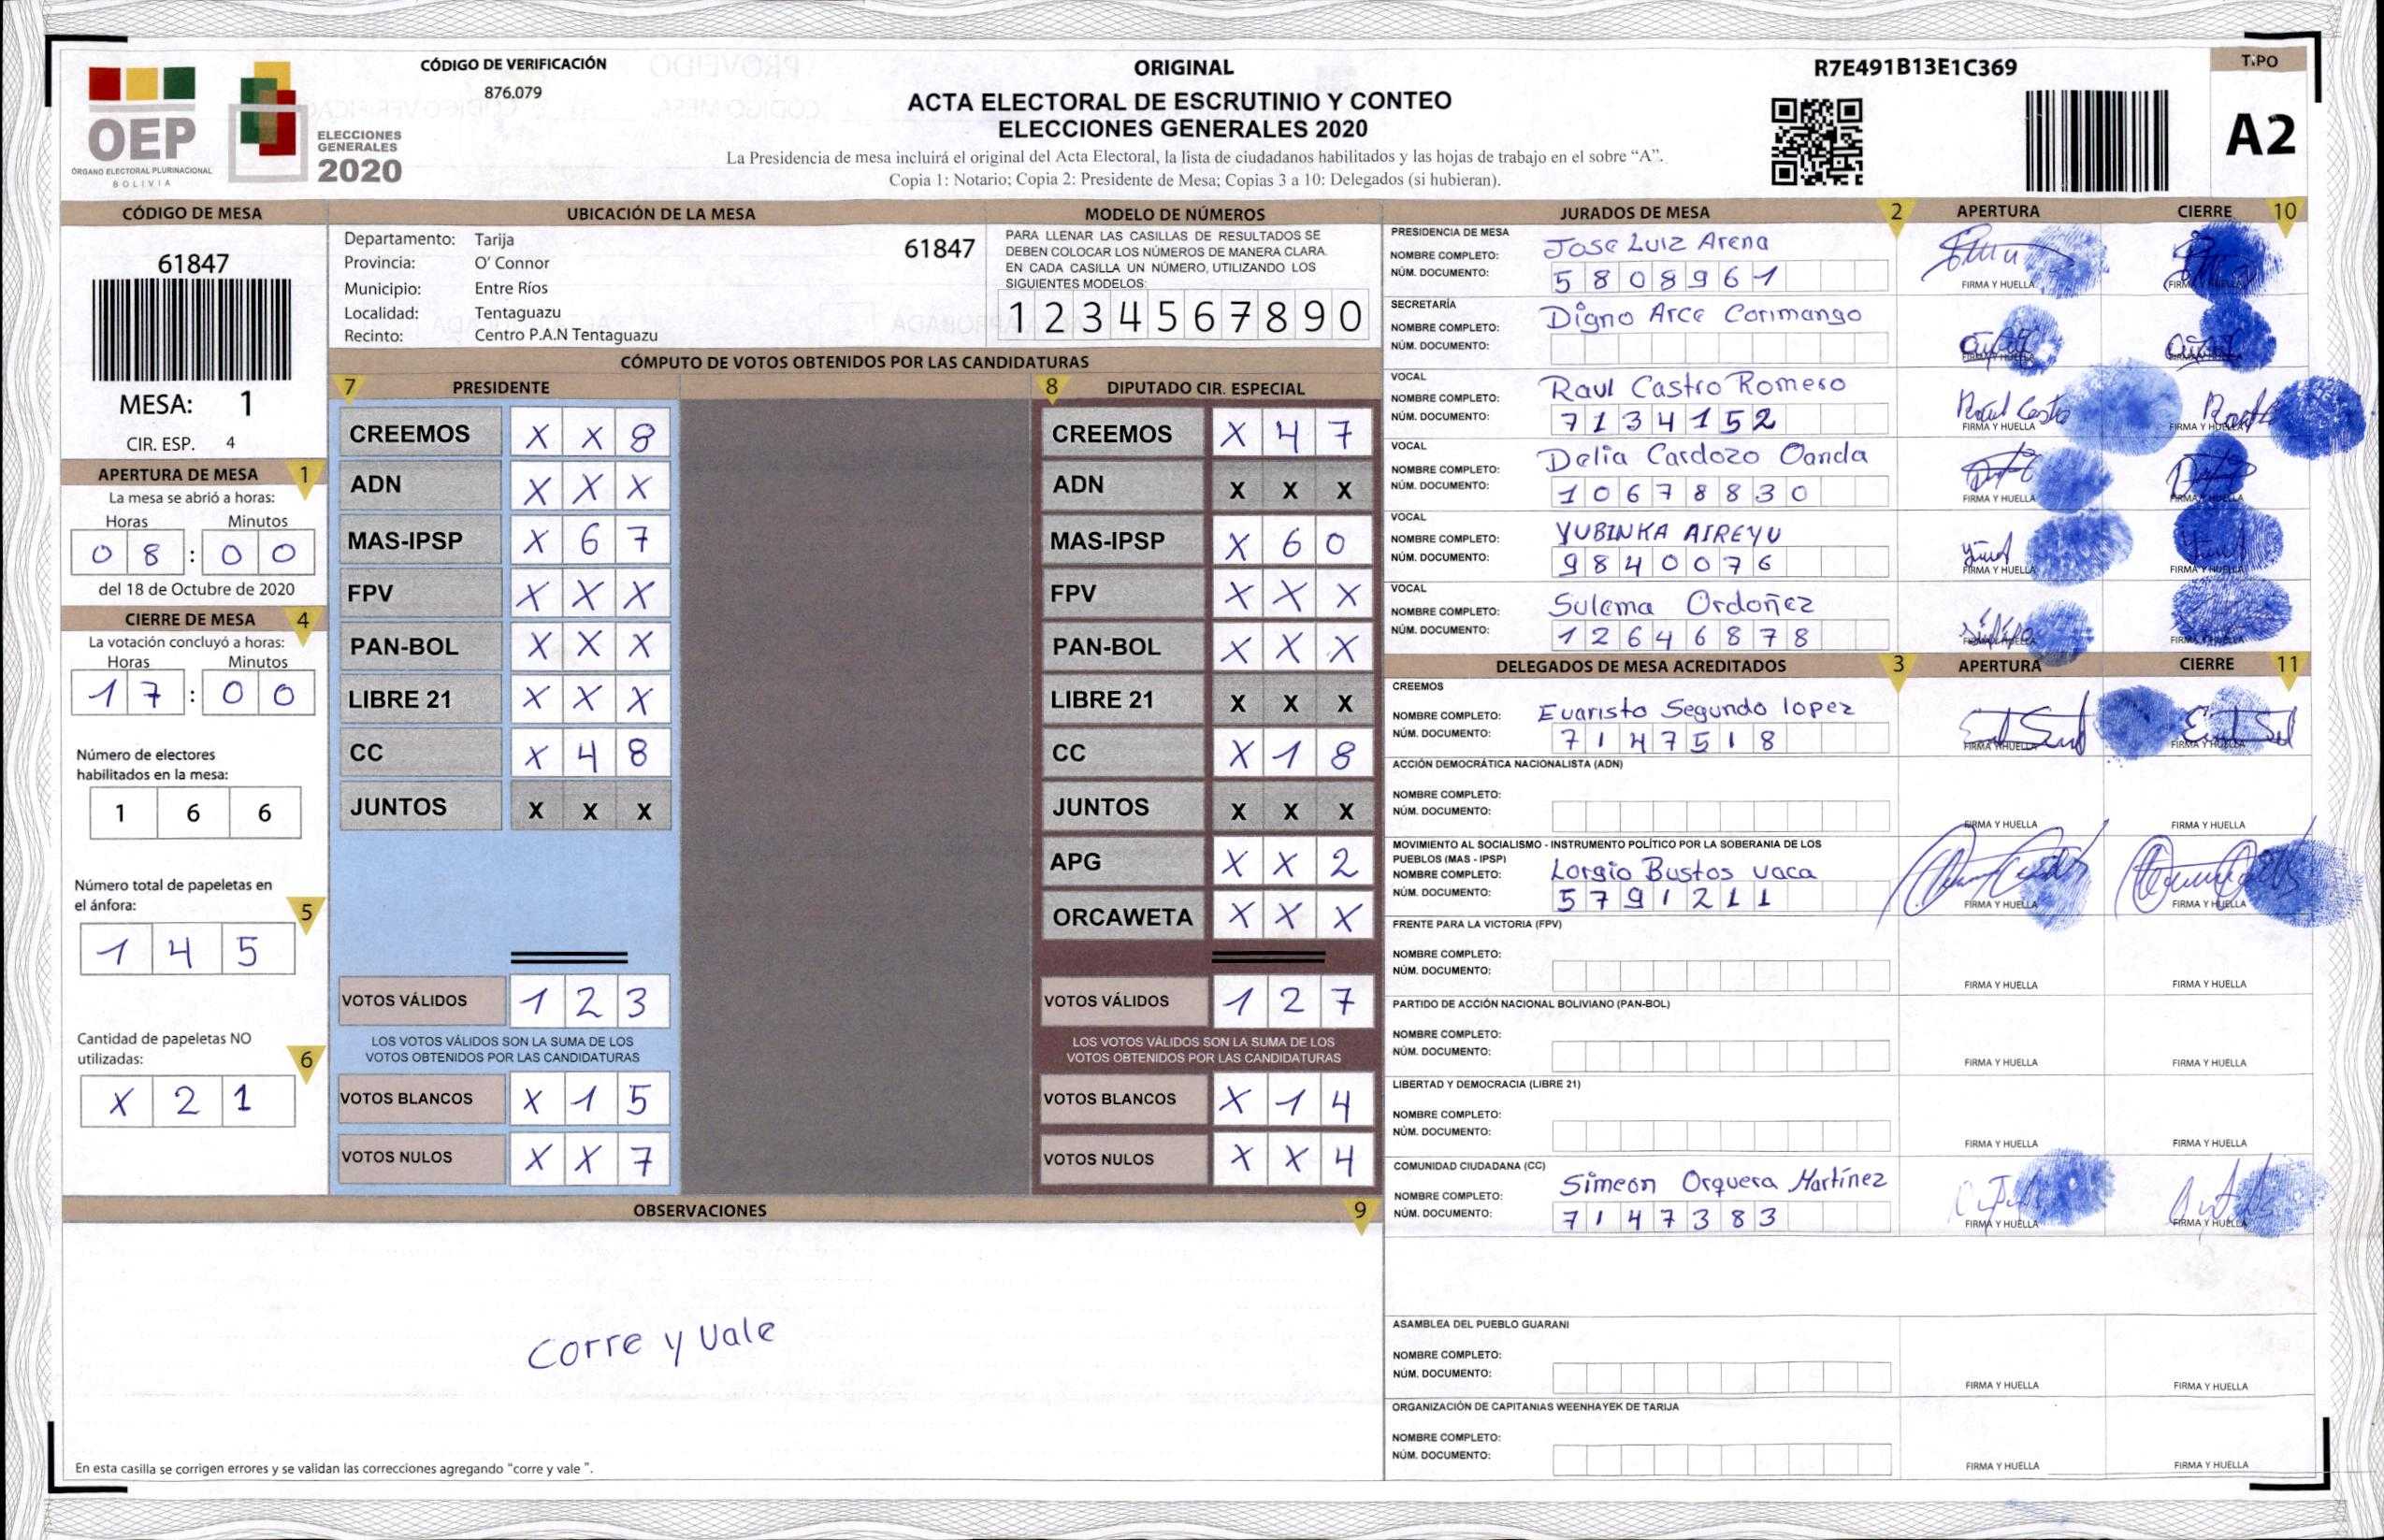 OEP
ÓRGANO ELECTORAL PLURINACIONAL
BOLIVIA
ELECCIONES
GENERALES
2020
CÓDIGO DE VERIFICACIÓN
876.079
ORIGINAL
ACTA ELECTORAL DE ESCRUTINIO Y CONTEO
ELECCIONES GENERALES 2020
La Presidencia de mesa incluirá el original del Acta Electoral, la lista de ciudadanos habilitados y las hojas de trabajo en el sobre “A”.
Copia 1: Notario; Copia 2: Presidente de Mesa; Copias 3 a 10: Delegados (si hubieran).
R7E491B13E1C369
TIPO
A2
CÓDIGO DE MESA
61847
MESA: 1
CIR. ESP. 4
APERTURA DE MESA 1
La mesa se abrió a horas:
Horas Minutos
0 8 : 0 0
del 18 de Octubre de 2020
CIERRE DE MESA 4
La votación concluyó a horas:
Horas Minutos
1 7 : 0 0
Número de electores
habilitados en la mesa:
1 6 6
Número total de papeletas en
el ánfora: 5
1 4 5
Cantidad de papeletas NO
utilizadas: 6
X 2 1
UBICACIÓN DE LA MESA
Departamento: Tarija 61847
Provincia: O' Connor
Municipio: Entre Ríos
Localidad: Tentaguazu
Recinto: Centro P.A.N Tentaguazu
MODELO DE NÚMEROS
PARA LLENAR LAS CASILLAS DE RESULTADOS SE
DEBEN COLOCAR LOS NÚMEROS DE MANERA CLARA.
EN CADA CASILLA UN NÚMERO, UTILIZANDO LOS
SIGUIENTES MODELOS:
1 2 3 4 5 6 7 8 9 0
CÓMPUTO DE VOTOS OBTENIDOS POR LAS CANDIDATURAS
7 PRESIDENTE
CREEMOS X X 8
ADN X X X
MAS-IPSP X 6 7
FPV X X X
PAN-BOL X X X
LIBRE 21 X X X
CC X 4 8
JUNTOS X X X
VOTOS VÁLIDOS 1 2 3
LOS VOTOS VÁLIDOS SON LA SUMA DE LOS
VOTOS OBTENIDOS POR LAS CANDIDATURAS
VOTOS BLANCOS X 1 5
VOTOS NULOS X X 7
8 DIPUTADO CIR. ESPECIAL
CREEMOS X 4 7
ADN X X X
MAS-IPSP X 6 0
FPV X X X
PAN-BOL X X X
LIBRE 21 X X X
CC X 1 8
JUNTOS X X X
APG X X 2
ORCAWETA X X X
VOTOS VÁLIDOS 1 2 7
LOS VOTOS VÁLIDOS SON LA SUMA DE LOS
VOTOS OBTENIDOS POR LAS CANDIDATURAS
VOTOS BLANCOS X 1 4
VOTOS NULOS X X 4
OBSERVACIONES 9
Corre y Vale
En esta casilla se corrigen errores y se validan las correcciones agregando “corre y vale ”.
JURADOS DE MESA 2 APERTURA CIERRE 10
PRESIDENCIA DE MESA
NOMBRE COMPLETO: Jose Luiz Arena
NÚM. DOCUMENTO: 5 8 0 8 9 6 1
FIRMA Y HUELLA FIRMA Y HUELLA
SECRETARÍA
NOMBRE COMPLETO: Digno Arce Corimango
NÚM. DOCUMENTO:
FIRMA Y HUELLA
VOCAL
NOMBRE COMPLETO: Raul Castro Romero
NÚM. DOCUMENTO: 7 1 3 4 1 5 2
FIRMA Y HUELLA FIRMA Y HUELLA
VOCAL
NOMBRE COMPLETO: Delia Cardozo Oanda
NÚM. DOCUMENTO: 1 0 6 7 8 8 3 0
FIRMA Y HUELLA FIRMA Y HUELLA
VOCAL
NOMBRE COMPLETO: YUBINKA AIREYU
NÚM. DOCUMENTO: 9 8 4 0 0 7 6
FIRMA Y HUELLA FIRMA Y HUELLA
VOCAL
NOMBRE COMPLETO: Sulema Ordoñez
NÚM. DOCUMENTO: 1 2 6 4 6 8 7 8
FIRMA Y HUELLA FIRMA Y HUELLA
DELEGADOS DE MESA ACREDITADOS 3 APERTURA CIERRE 11
CREEMOS
NOMBRE COMPLETO: Evaristo Segundo lopez
NÚM. DOCUMENTO: 7 1 4 7 5 1 8
FIRMA Y HUELLA FIRMA Y HUELLA
ACCIÓN DEMOCRÁTICA NACIONALISTA (ADN)
NOMBRE COMPLETO:
NÚM. DOCUMENTO:
FIRMA Y HUELLA FIRMA Y HUELLA
MOVIMIENTO AL SOCIALISMO - INSTRUMENTO POLÍTICO POR LA SOBERANIA DE LOS
PUEBLOS (MAS - IPSP)
NOMBRE COMPLETO: Lorgio Bustos vaca
NÚM. DOCUMENTO: 5 7 9 1 2 1 1
FIRMA Y HUELLA FIRMA Y HUELLA
FRENTE PARA LA VICTORIA (FPV)
NOMBRE COMPLETO:
NÚM. DOCUMENTO:
FIRMA Y HUELLA FIRMA Y HUELLA
PARTIDO DE ACCIÓN NACIONAL BOLIVIANO (PAN-BOL)
NOMBRE COMPLETO:
NÚM. DOCUMENTO:
FIRMA Y HUELLA FIRMA Y HUELLA
LIBERTAD Y DEMOCRACIA (LIBRE 21)
NOMBRE COMPLETO:
NÚM. DOCUMENTO:
FIRMA Y HUELLA FIRMA Y HUELLA
COMUNIDAD CIUDADANA (CC)
NOMBRE COMPLETO: Simeon Orquera Martínez
NÚM. DOCUMENTO: 7 1 4 7 3 8 3
FIRMA Y HUELLA FIRMA Y HUELLA
ASAMBLEA DEL PUEBLO GUARANI
NOMBRE COMPLETO:
NÚM. DOCUMENTO:
FIRMA Y HUELLA FIRMA Y HUELLA
ORGANIZACIÓN DE CAPITANIAS WEENHAYEK DE TARIJA
NOMBRE COMPLETO:
NÚM. DOCUMENTO:
FIRMA Y HUELLA FIRMA Y HUELLA